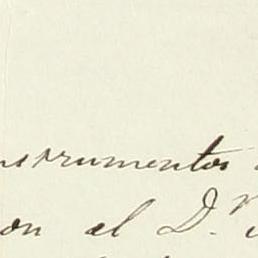 nstrumentos
on el D.